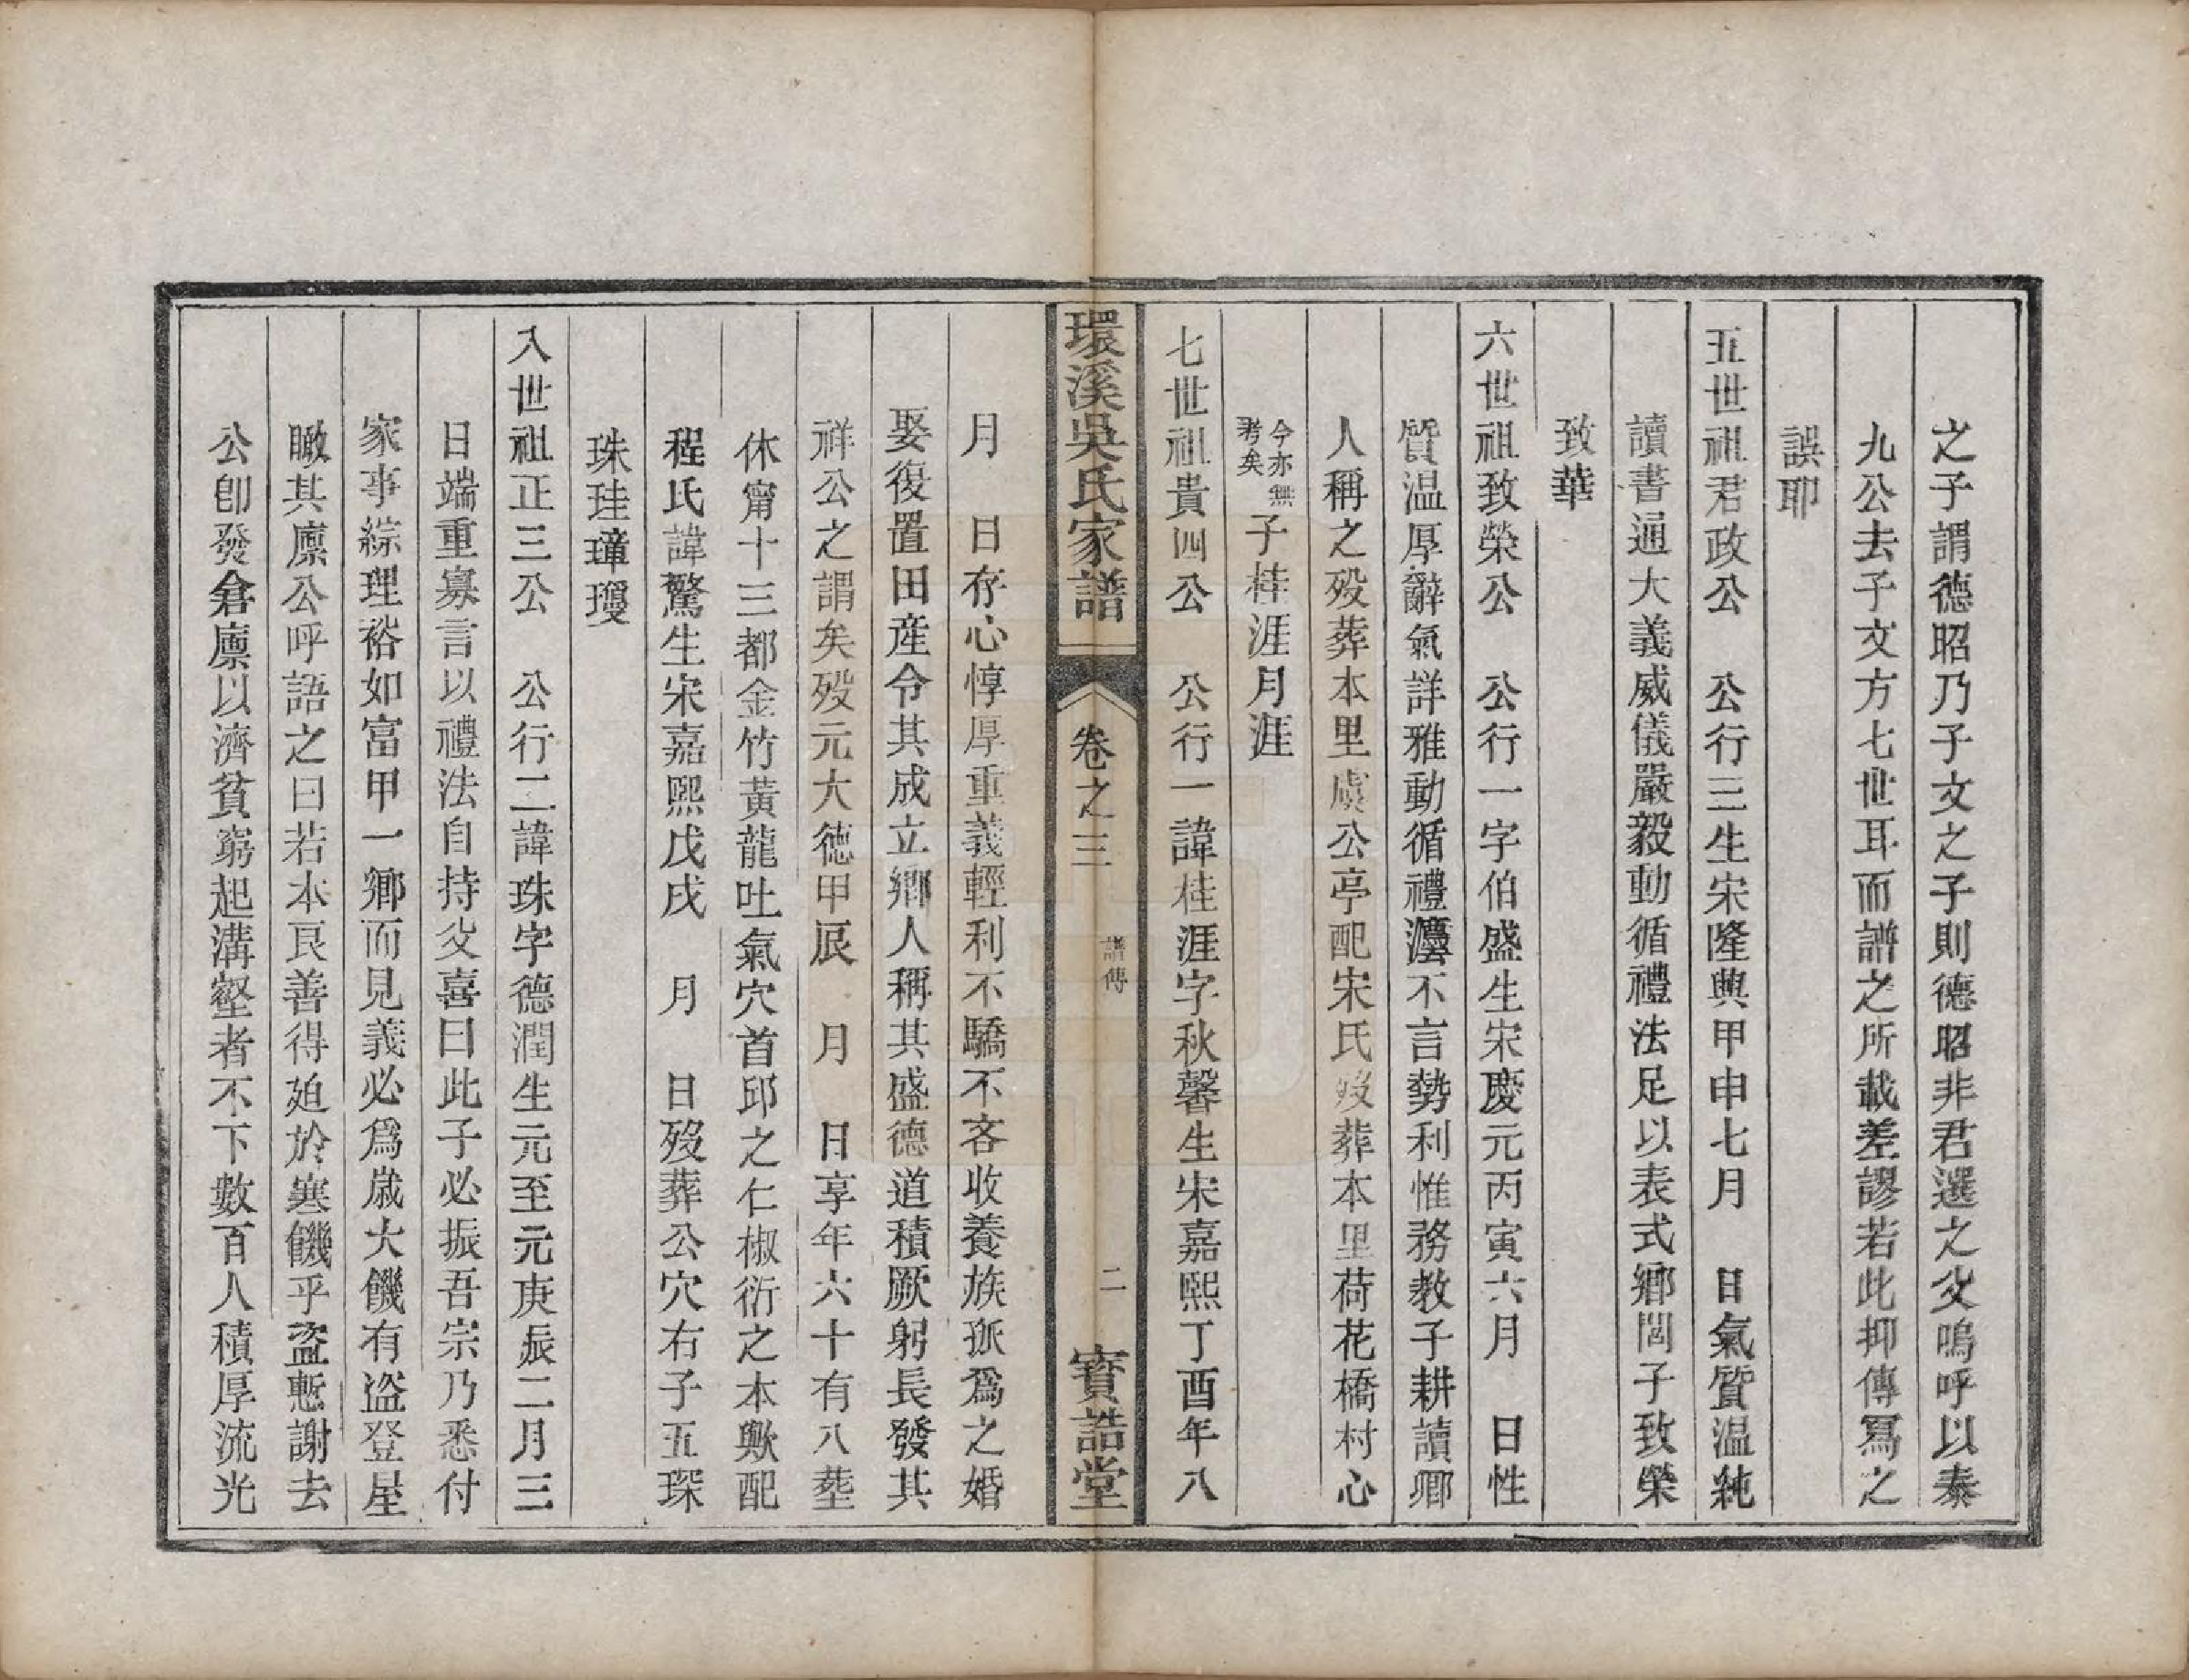 之子謂德昭乃子文之子則德昭非君選之父嗚呼以泰
九公去子文方七世耳而譜之所載差謬若此抑傳寫之
誤耶
五世祖君政公　公行三生宋隆興甲申七月　日氣質温純
讀書通大義威儀嚴毅動循禮法足以表式鄉閭子致榮
致華
六世祖致榮公　公行一字伯盛生宋慶元丙寅六月　日性
質温厚辭氣詳雅動循禮灋不言勢利惟務教子耕讀鄉
人稱之殁葬本里虞公亭配宋氏殁葬本里荷花橋村心
今亦無考矣子桂涯月涯
七世祖貴四公　公行一諱桂涯字秋馨生宋嘉熙丁酉年八
環溪吳氏家譜　卷之三　譜傳　二　寳誥堂
月　日存心惇厚重義輕利不驕不吝收養族孤爲之婚
娶復置田産令其成立鄉人稱其盛德道積厥躬長發其
祥公之謂矣殁元大德甲辰　月　日享年六十有八塟
休甯十三都金竹黃龍吐氣穴首邱之仁椒衍之本歟配
程氏諱驚生宋嘉熙戊戌　月　日殁葬公穴右子五琛
珠珪璋璦
入世祖正三公　公行二諱珠字德潤生元至元庚辰二月三
日端重寡言以禮法自持父喜曰此子必振吾宗乃悉付
家事綜理裕如富甲一鄉而見義必爲歲大饑有盗登星
瞰其廩公呼語之曰若本良善得廹於寒饑乎盗慙謝去
公卽發倉廩以濟貧窮起溝壑者不下數百人積厚流光